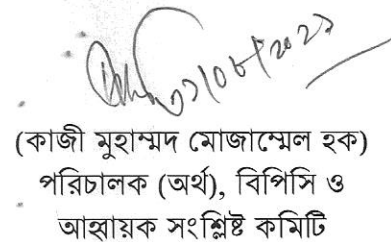 (কাজী মুহাম্মদ মোজাম্মেল হক)
পরিচালক (অর্থ), বিপিসি ও
আহ্বায়ক সংশ্লিষ্ট কমিটি